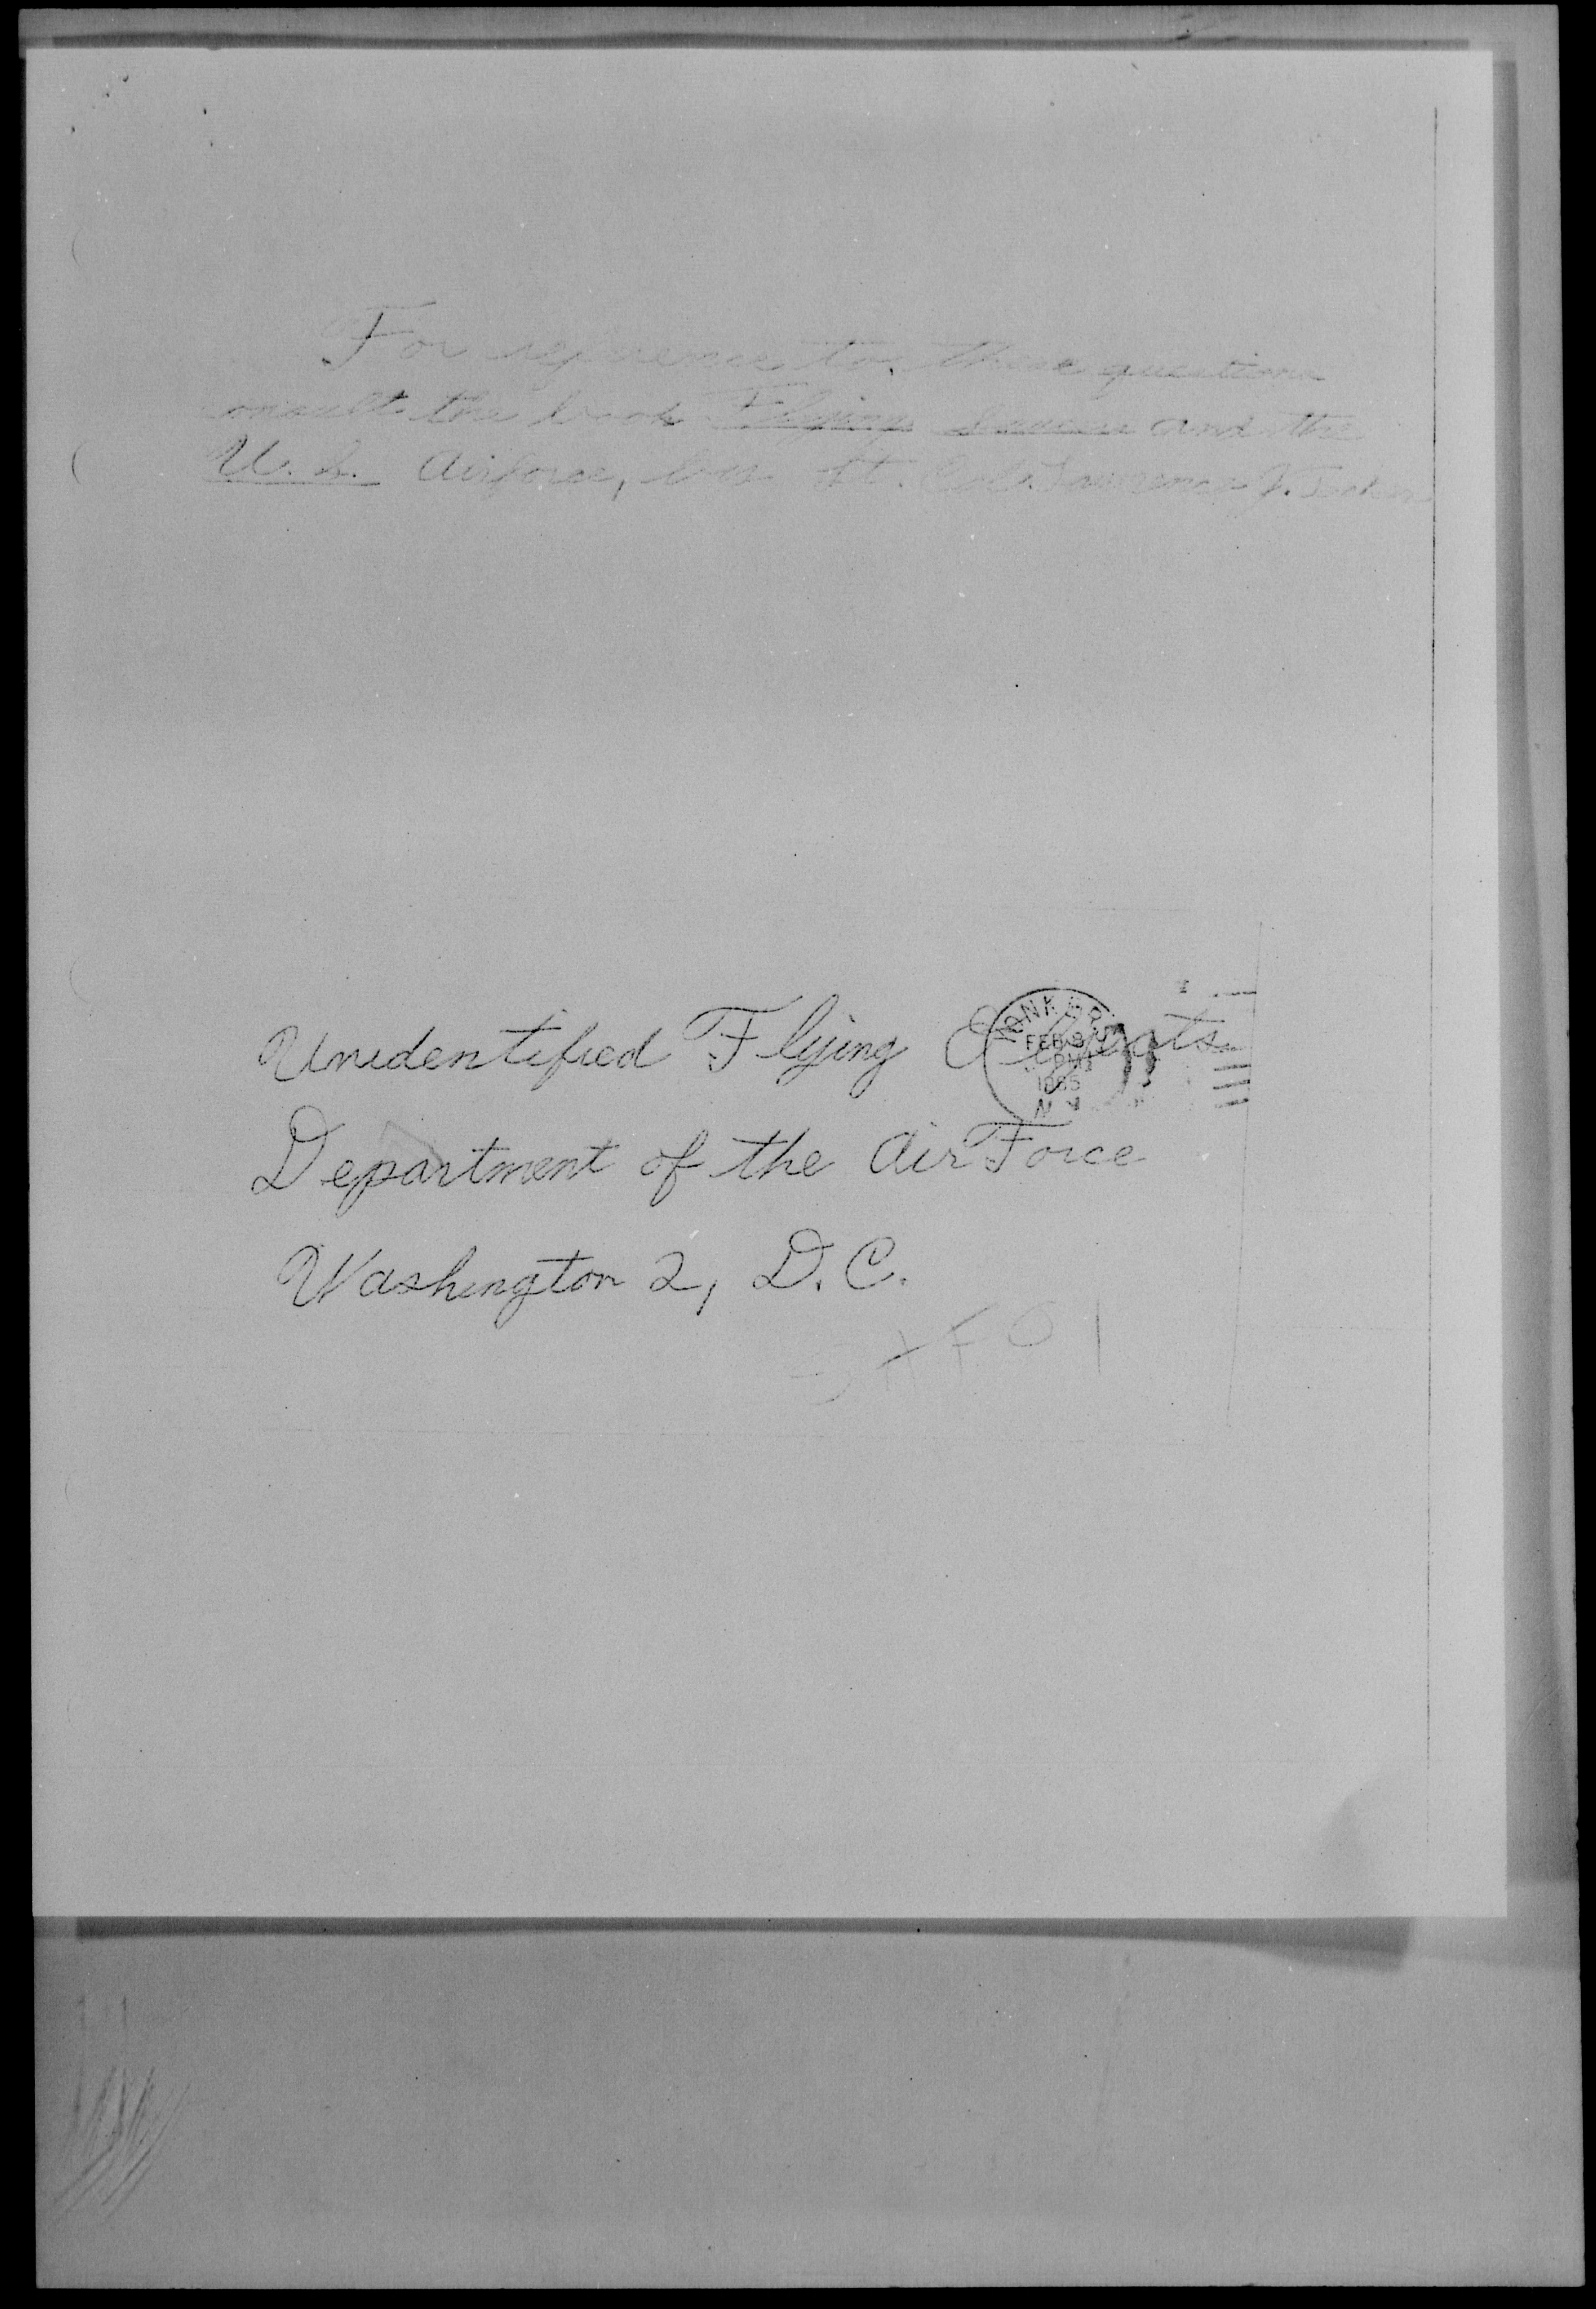 For reference to these questions
consult the book Flying Saucers and the
U. S. Airforce, by Lt. Col. Lawrence J. Tacker
YONKERS
FEB 8
PM
1965
N Y
Unidentified Flying Objects
Department of the Air Force
Washington 2, D. C.
SAFOI